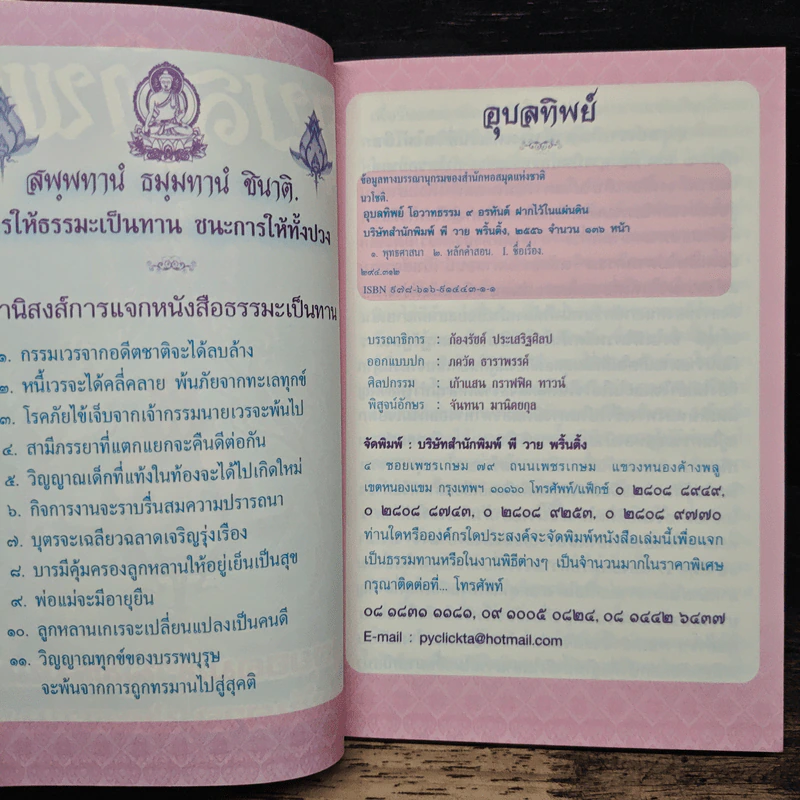 สพฺพทานํ ธมฺมทานํ ชินาติ.
รให้ธรรมะเป็นทาน ชนะการให้ทั้งปวง
านิสงส์การแจกหนังสือธรรมะเป็นทาน
๑. กรรมเวรจากอดีตชาติจะได้ลบล้าง
๒. หนี้เวรจะได้คลี่คลาย พ้นภัยจากทะเลทุกข์
๓. โรคภัยไข้เจ็บจากเจ้ากรรมนายเวรจะพ้นไป
๔. สามีภรรยาที่แตกแยกจะคืนดีต่อกัน
๕. วิญญาณเด็กที่แท้งในท้องจะได้ไปเกิดใหม่
๖. กิจการงานจะราบรื่นสมความปรารถนา
๗. บุตรจะเฉลียวฉลาดเจริญรุ่งเรือง
๘. บารมีคุ้มครองลูกหลานให้อยู่เย็นเป็นสุข
๙. พ่อแม่จะมีอายุยืน
๑๐. ลูกหลานเกเรจะเปลี่ยนแปลงเป็นคนดี
๑๑. วิญญาณทุกข์ของบรรพบุรุษ
จะพ้นจากการถูกทรมานไปสู่สุคติ
อุบลทิพย์
ข้อมูลทางบรรณานุกรมของสำนักหอสมุดแห่งชาติ
นวโชติ.
อุบลทิพย์ โอวาทธรรม ๙ อรหันต์ ฝากไว้ในแผ่นดิน
บริษัทสำนักพิมพ์ พี วาย พริ้นติ้ง, ๒๕๕๖ จำนวน ๑๓๖ หน้า
๑. พุทธศาสนา ๒. หลักคำสอน. I. ชื่อเรื่อง.
๒๙๔.๓๑๒
ISBN ๙๗๘-๖๑๖-๙๑๔๔๓-๑-๑
บรรณาธิการ : ก้องรัชต์ ประเสริฐศิลป
ออกแบบปก : ภควัต ธาราพรรค์
ศิลปกรรม : เก้าแสน กราฟฟิค ทาวน์
พิสูจน์อักษร : จันทนา มานิตยกุล
จัดพิมพ์ : บริษัทสำนักพิมพ์ พี วาย พริ้นติ้ง
๔ ซอยเพชรเกษม ๗๙ ถนนเพชรเกษม แขวงหนองค้างพลู
เขตหนองแขม กรุงเทพฯ ๑๐๑๖๐ โทรศัพท์/แฟ็กซ์ ๐ ๒๘๐๘ ๘๙๔๙,
๐ ๒๘๐๘ ๘๗๔๓, ๐ ๒๘๐๘ ๙๒๕๓, ๐ ๒๘๐๘ ๙๗๗๐
ท่านใดหรือองค์กรใดประสงค์จะจัดพิมพ์หนังสือเล่มนี้เพื่อแจก
เป็นธรรมทานหรือในงานพิธีต่างๆ เป็นจำนวนมากในราคาพิเศษ
กรุณาติดต่อที่... โทรศัพท์
๐๘ ๑๘๓๑ ๑๑๘๑, ๐๙ ๑๐๐๕ ๐๘๒๔, ๐๘ ๑๔๔๒ ๖๔๓๗
E-mail : pyclickta@hotmail.com